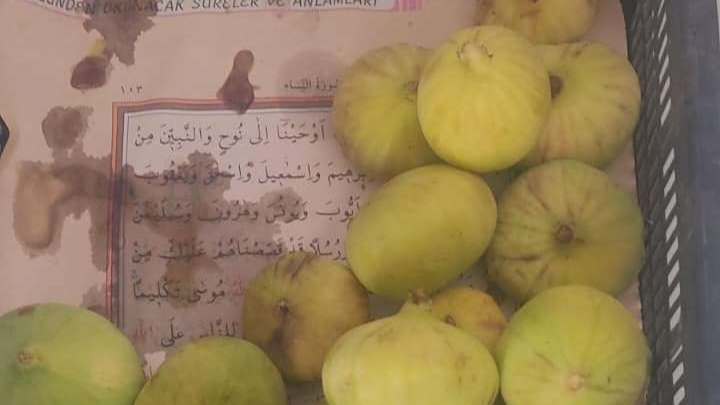 OKUNACAK SURELER VE ANLAMLARI
سُورَةُ النِّسَاء ١٠٣
أَوْحَيْنَا إِلٰى نُوحٍ وَالنَّبِيّنَ مِنْ
وَإِسْمٰعِيلَ وَإِسْحٰقَ وَيَعْقُوبَ
أَيُّوبَ وَيُونُسَ وَهٰرُونَ وَسُلَيْمٰنَ
رُسُلًا قَدْ قَصَصْنَاهُمْ عَلَيْكَ مِنْ
مُوسٰى تَكْلِيمًا
لِلنَّاسِ عَلَى